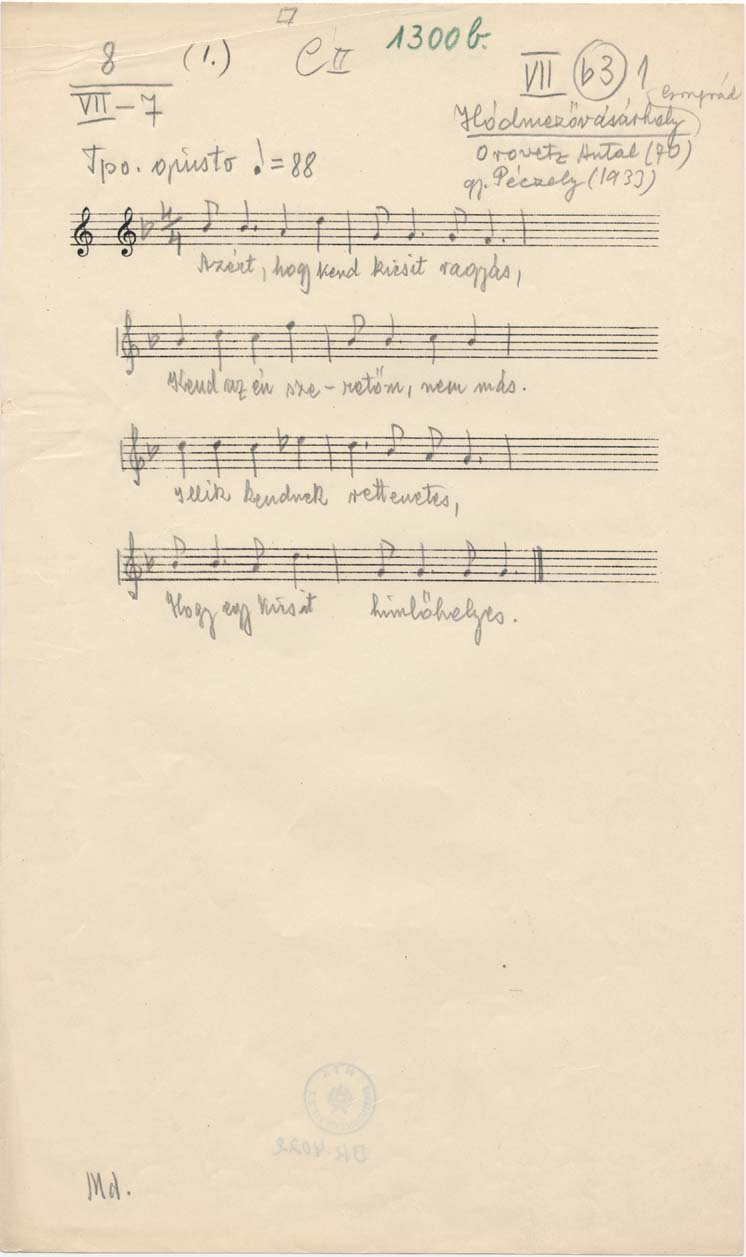 8 (1.) C II 1300b.
VII - 7
VII b3 1
Csongrád
Hódmezővásárhely
Orovetz Antal (70)
gy. Péczely (1933)
Tpo. giusto ♩ = 88
4/4
Azért, hogy kend kicsit ragyás,
Kend az én sze-retőm, nem más.
Illik kendnek rettenetes,
Hogy egy kicsit himlőhelyes.
BR 4022
Md.